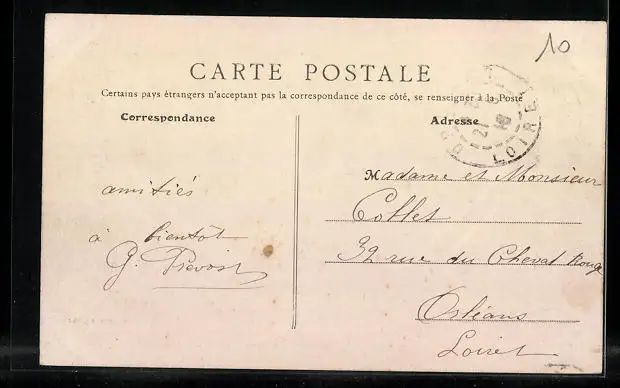 10
CARTE POSTALE
Certains pays étrangers n'acceptant pas la correspondance de ce côté, se renseigner à la Poste
Correspondance
amitiés
à bientôt
G. Prévost
Adresse
LOIRET
Madame et Monsieur
Collet
32 rue du Cheval Rouge
Orléans
Loiret